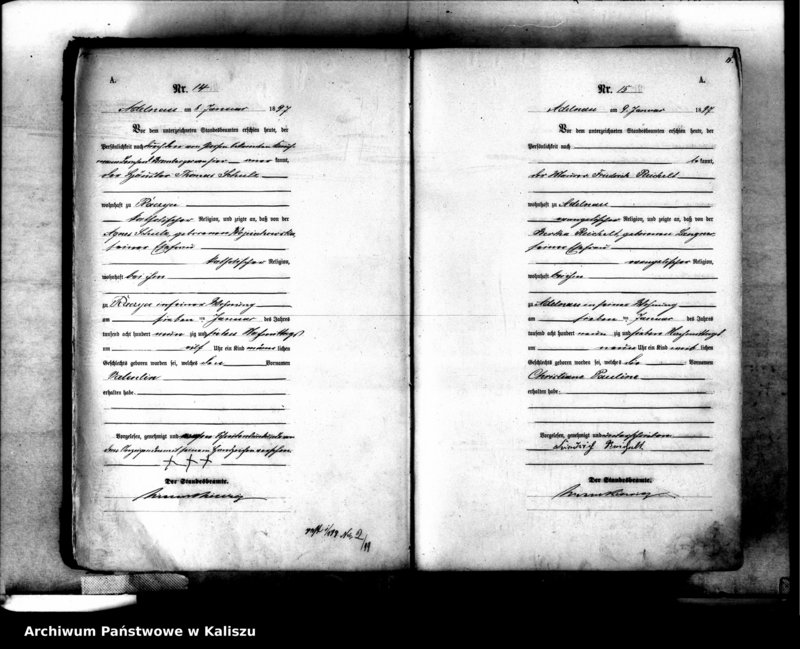 A.
Nr. 14
Adelnau am 8 Januar 1897
Vor dem unterzeichneten Standesbeamten erschien heute, der
Persönlichkeit nach
kannt,
der Häusler Thomas Schulz
wohnhaft zu Raczyce
katholischer Religion, und zeigte an, daß von der
Agnes Schulz geborenen
seiner Ehefrau
katholischer Religion,
wohnhaft bei ihm
zu in seiner Wohnung
am sieben ten Januar des Jahres
tausend acht hundert neun zig und sieben Nachmittags
um Uhr ein Kind männ lichen
Geschlechts geboren worden sei, welches den Vornamen
Valentin
erhalten habe.
Vorgelesen, genehmigt und
+++
Der Standesbeamte.
A.
15.
Nr. 15
Adelnau am 9. Januar 1897
Vor dem unterzeichneten Standesbeamten erschien heute, der
Persönlichkeit nach
be kannt,
der Maurer Friedrich Reichelt
wohnhaft zu Adelnau
evangelischer Religion, und zeigte an, daß von der
Bertha Reichelt, geborenen
seiner Ehefrau
evangelischer Religion,
wohnhaft bei ihm
zu Adelnau in seiner Wohnung
am sieben ten Januar des Jahres
tausend acht hundert neun zig und sieben Nachmittags
um neun Uhr ein Kind weib lichen
Geschlechts geboren worden sei, welches die Vornamen
Christiane Pauline
erhalten habe.
Vorgelesen, genehmigt und unterschrieben
Friedrich Reichelt
Der Standesbeamte.
Archiwum Państwowe w Kaliszu